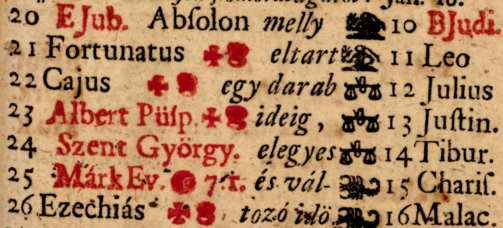 20 E Jub. Abſolon melly 10 B Judi.
21 Fortunatus eltart 11 Leo
22 Cajus egy darab 12 Julius
23 Albert Püſp. ideig, 13 Juſtin.
24 Szent György. elegyes 14 Tibur.
25 Márk Ev. 7. r. és vál- 15 Chariſ.
26 Ezechiás tozó idö, 16 Malac.